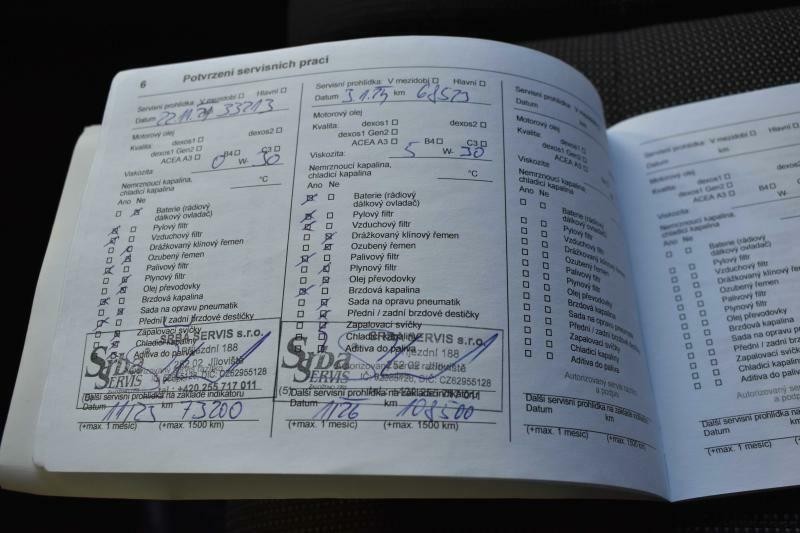 6 Potvrzení servisních prací
Servisní prohlídka: V mezidobí Hlavní
Datum 22.11.21 33213
Motorový olej
Kvalita: dexos1 dexos2
dexos1 Gen2
ACEA A3 B4 C3
Viskozita 0 W- 30
Nemrznoucí kapalina,
chladicí kapalina °C
Ano Ne
Baterie (rádiový
dálkový ovladač)
Pylový filtr
Vzduchový filtr
Drážkovaný klínový řemen
Ozubený řemen
Palivový filtr
Plynový filtr
Olej převodovky
Brzdová kapalina
Sada na opravu pneumatik
Přední / zadní brzdové destičky
Zapalovací svíčky
Chladicí kapalina
Aditiva do paliva
Srba SERVIS
SRBA SERVIS s.r.o.
Příjezdní 188
252 02 Jíloviště
+420 255 717 011
Další servisní prohlídka na základě indikátoru
Datum 11/23 km 73200
(+max. 1 měsíc) (+max. 1500 km)
Servisní prohlídka: V mezidobí Hlavní
Datum 3.1.24 km 68523
Motorový olej
Kvalita: dexos1 dexos2
dexos1 Gen2
ACEA A3 B4 C3
Viskozita 5 W- 30
Nemrznoucí kapalina,
chladicí kapalina °C
Ano Ne
Baterie (rádiový
dálkový ovladač)
Pylový filtr
Vzduchový filtr
Drážkovaný klínový řemen
Ozubený řemen
Palivový filtr
Plynový filtr
Olej převodovky
Brzdová kapalina
Sada na opravu pneumatik
Přední / zadní brzdové destičky
Zapalovací svíčky
Chladicí kapalina
Aditiva do paliva
Srba SERVIS
SRBA SERVIS s.r.o.
Příjezdní 188
252 02 Jíloviště
DIČ: CZ62955128
Další servisní prohlídka na základě indikátoru
Datum 1/26 km 108500
(+max. 1 měsíc) (+max. 1500 km)
Servisní prohlídka: V mezidobí
Datum km
Motorový olej
Kvalita: dexos1
dexos1 Gen2
ACEA A3
Viskozita
Nemrznoucí kapalina,
chladicí kapalina
Ano Ne
Baterie (rádiový
dálkový ovladač)
Pylový filtr
Vzduchový filtr
Drážkovaný klínový řemen
Ozubený řemen
Palivový filtr
Plynový filtr
Olej převodovky
Brzdová kapalina
Sada na opravu
Přední / zadní
Zapalovací svíčky
Chladicí kapalina
Aditiva do paliva
Autorizovaný servis
a podpis
Další servisní prohlídka na základě
Datum km
(+max. 1 měsíc) (+max. 1500 km)
Servisní prohlídka: V mezidobí
Datum km
Motorový olej
Kvalita: dexos1
dexos1 Gen2
ACEA A3 B4
Viskozita
Nemrznoucí kapalina,
chladicí kapalina
Ano Ne
Baterie (rádiový
dálkový ovladač)
Pylový filtr
Vzduchový filtr
Drážkovaný klínový
Ozubený řemen
Palivový filtr
Plynový filtr
Olej převodovky
Brzdová kapalina
Sada na opravu
Přední / zadní
Zapalovací svíčky
Chladicí kapalina
Aditiva do paliva
Autorizovaný servis
a podpis
Další servisní prohlídka na základě
Datum km
(+max. 1 měsíc)